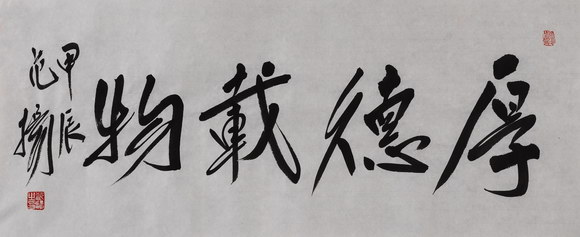 厚德載物
甲辰
范揚